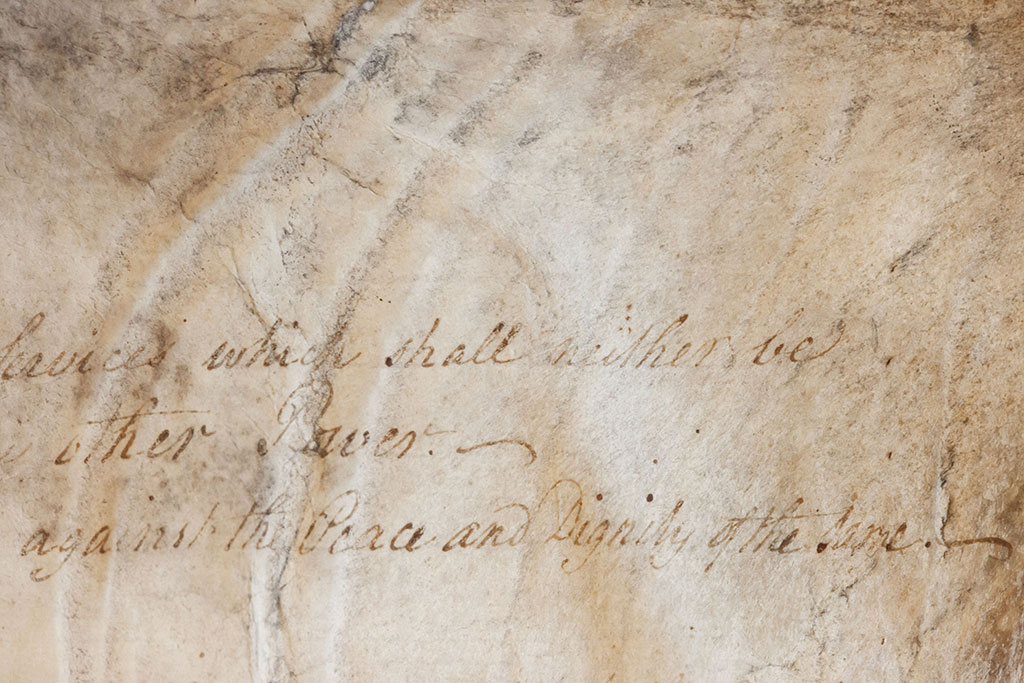 Services which shall neither be
other Power.
against the Peace and Dignity of the same.